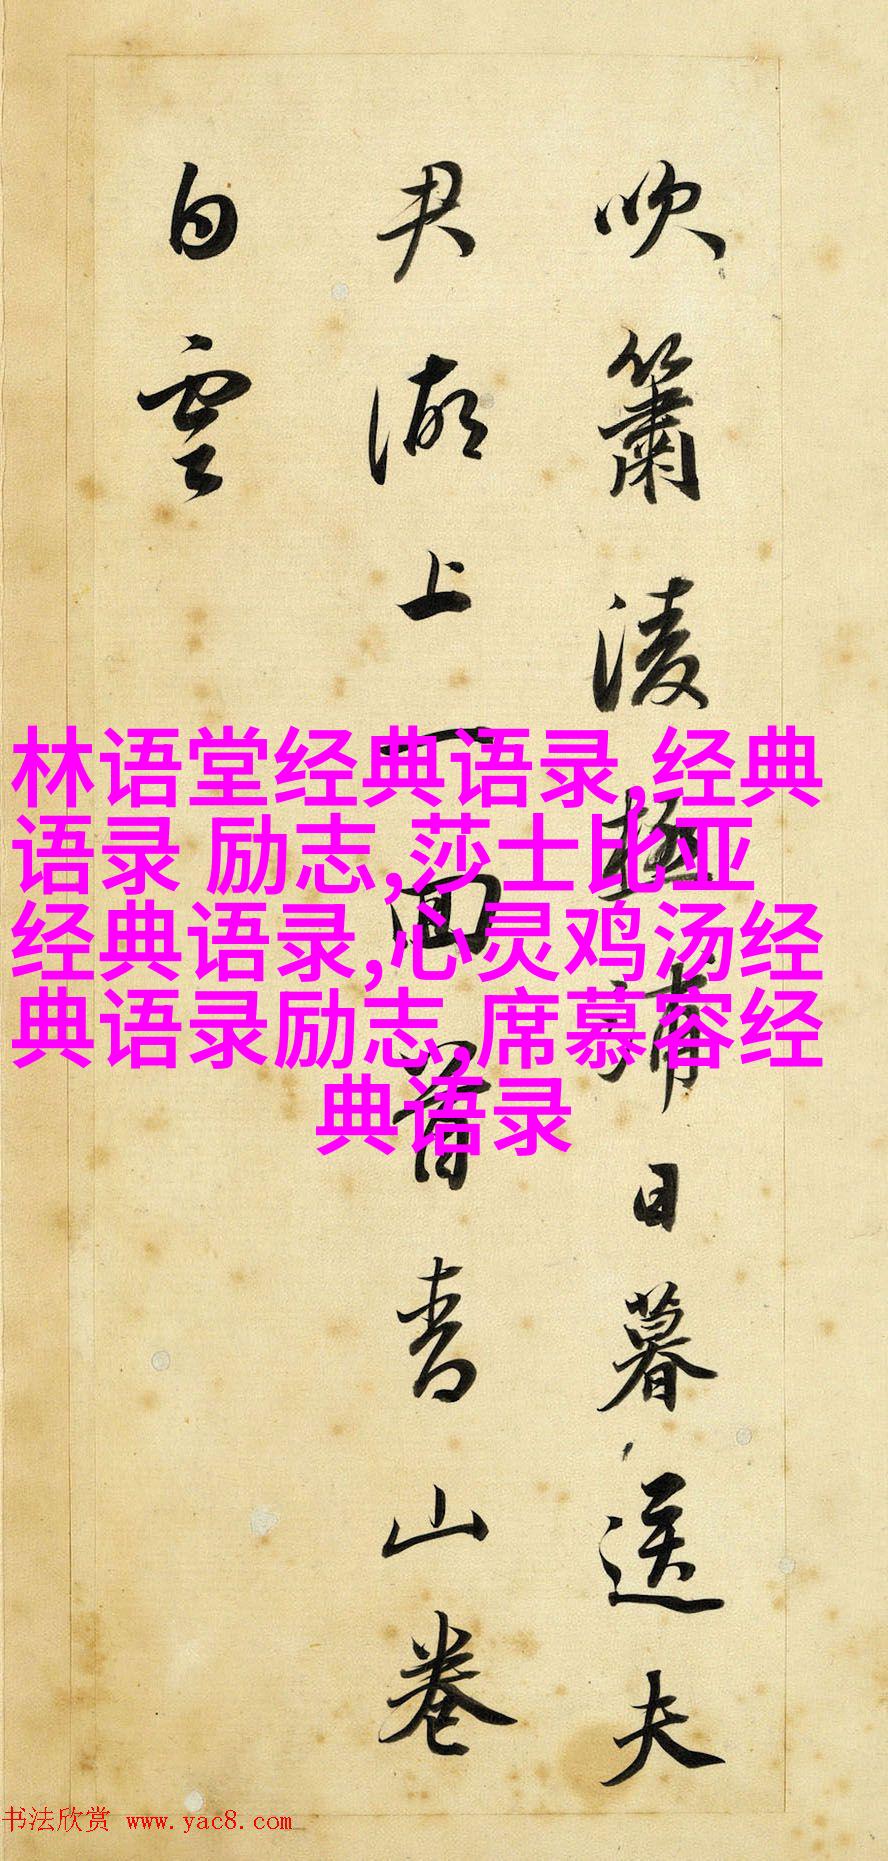 吹簫淩極浦日暮送夫
君湖上一回首青山卷
白雲
林语堂经典语录,经典
语录 励志,莎士比亚
经典语录,心灵鸡汤经
典语录励志,席慕容经
典语录
书法欣赏 www.yac8.com